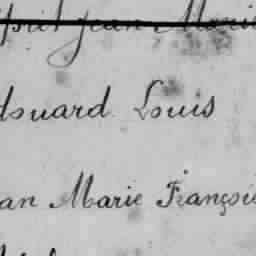 Jean Marie
douard Louis
an Marie Françoi